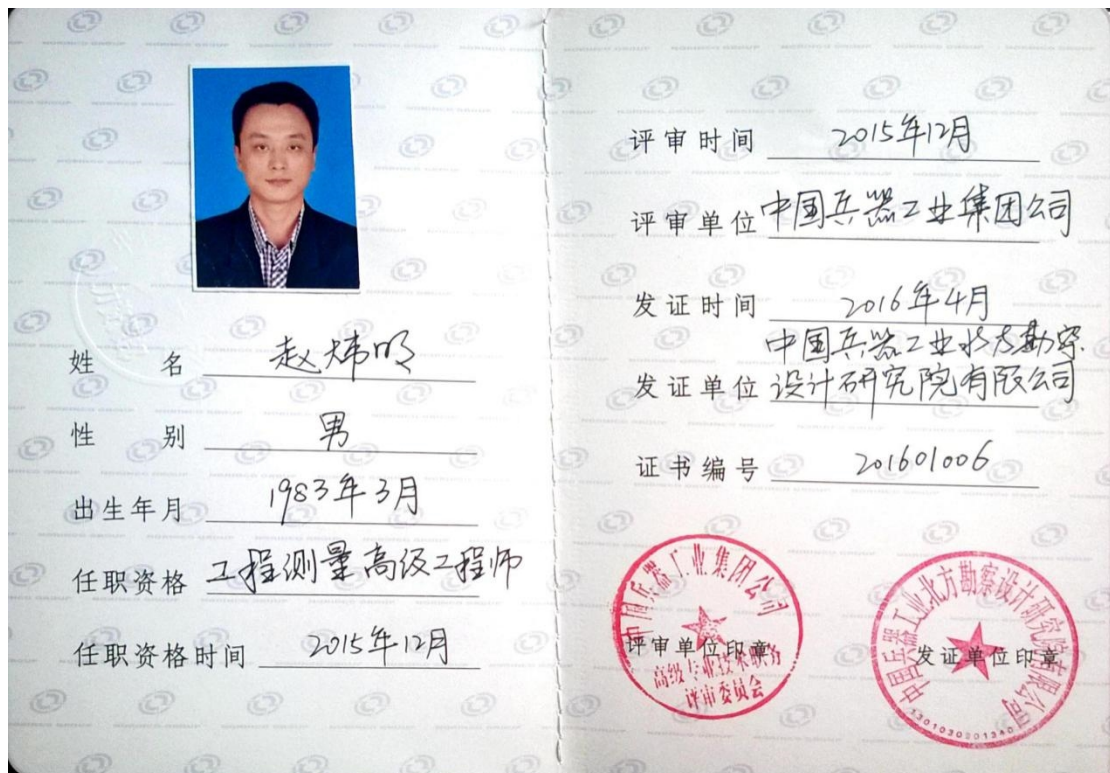 姓名 赵炜明
性别 男
出生年月 1983年3月
任职资格 工程测量高级工程师
任职资格时间 2015年12月
评审时间 2015年12月
评审单位 中国兵器工业集团公司
发证时间 2016年4月
中国兵器工业北方勘察
发证单位 设计研究院有限公司
证书编号 201601006
中国兵器工业集团公司
评审单位印章
高级专业技术职务
评审委员会
中国兵器工业北方勘察设计研究院有限公司
发证单位印章